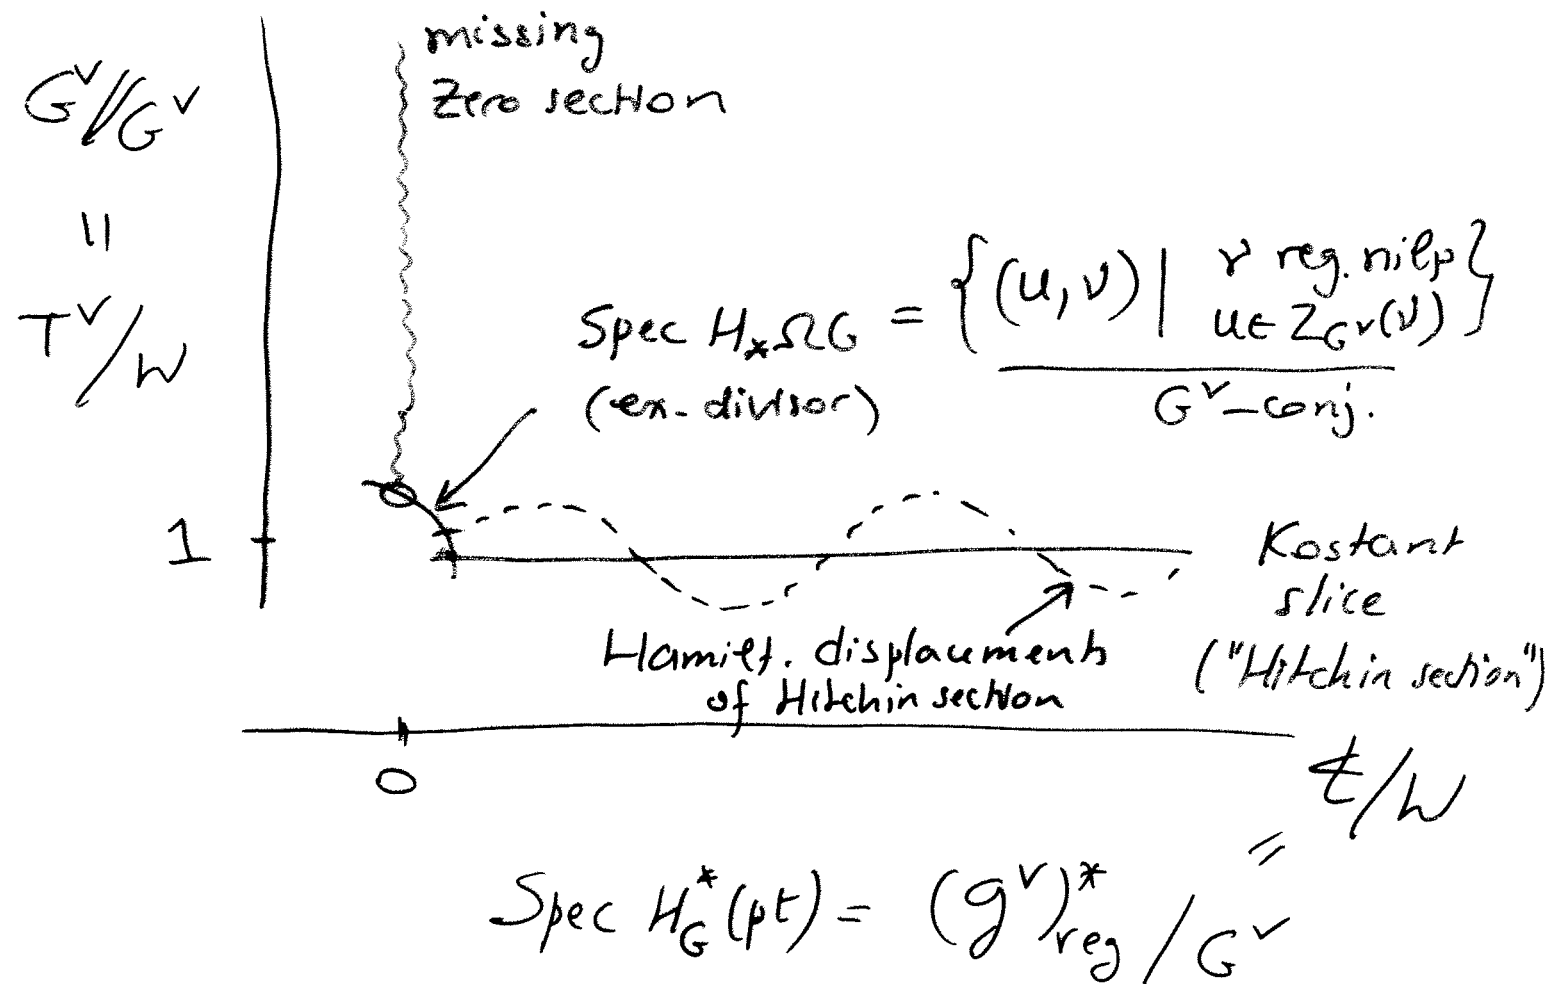 missing
Zero section
G^∨//G^∨
=
T^∨/W
Spec H_*ΩG = {(u, ν) | ν reg. nilp
u ∈ Z_{G^∨}(ν)}
(ex-divisor)
G^∨-conj.
1
Kostant
slice
("Hitchin section")
Hamilt. displacements
of Hitchin section
0
t/W
=
Spec H^*_G(pt) = (g^∨)^*_reg / G^∨